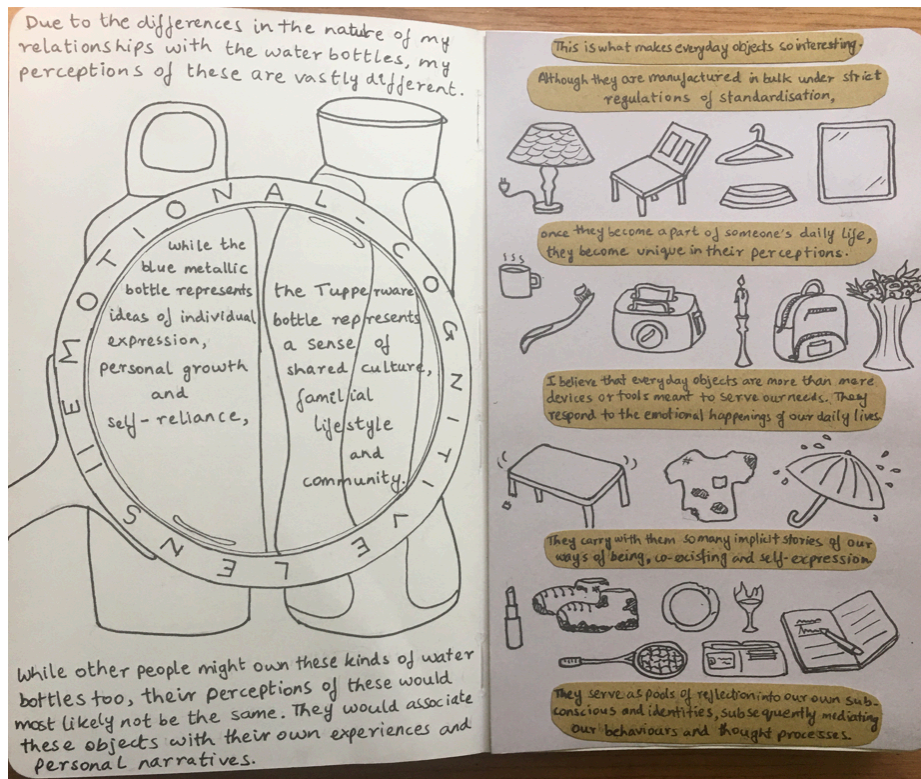 Due to the differences in the nature of my
relationships with the water bottles, my
perceptions of these are vastly different.
EMOTIONAL-COGNITIVE LENS
while the
blue metallic
bottle represents
ideas of individual
expression,
personal growth
and
self-reliance,
the Tupperware
bottle represents
a sense of
shared culture,
familial
lifestyle
and
community.
While other people might own these kinds of water
bottles too, their perceptions of these would
most likely not be the same. They would associate
these objects with their own experiences and
personal narratives.
This is what makes everyday objects so interesting.
Although they are manufactured in bulk under strict
regulations of standardisation,
once they become a part of someone's daily life,
they become unique in their perceptions.
I believe that everyday objects are more than mere
devices or tools meant to serve our needs. They
respond to the emotional happenings of our daily lives.
They carry with them so many implicit stories of our
ways of being, co-existing and self-expression.
They serve as pools of reflection into our own sub-
conscious and identities, subsequently mediating
our behaviours and thought processes.